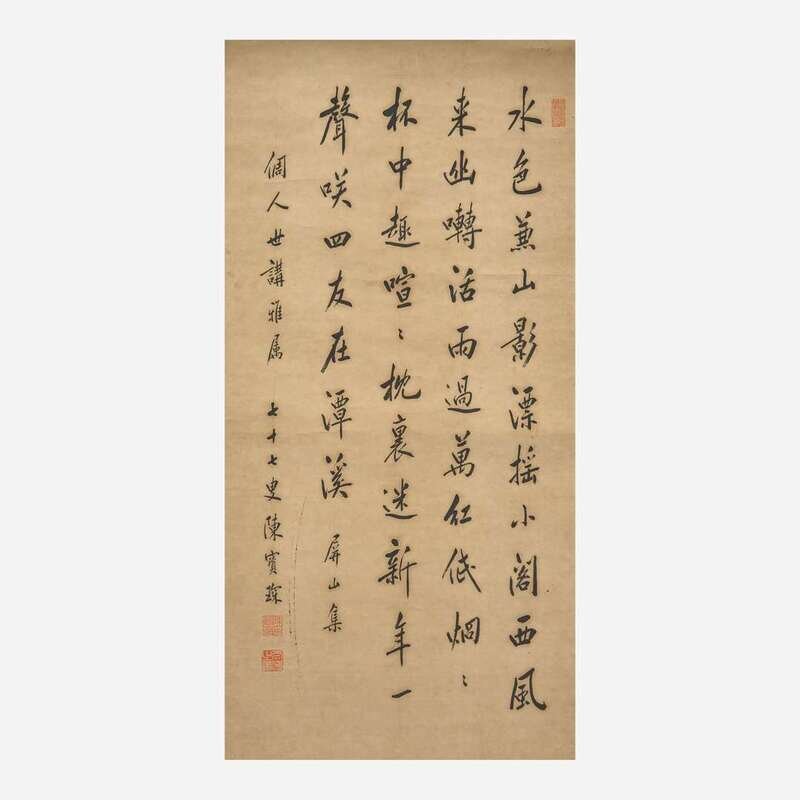 水色蒹山影漂摇小阁西風
来幽囀活雨過萬红低烟〻
杯中趣喧〻枕裏迷新年一
聲咲四友在潭溪 屏山集
倜人世講雅属 七十七叟陳寳琛